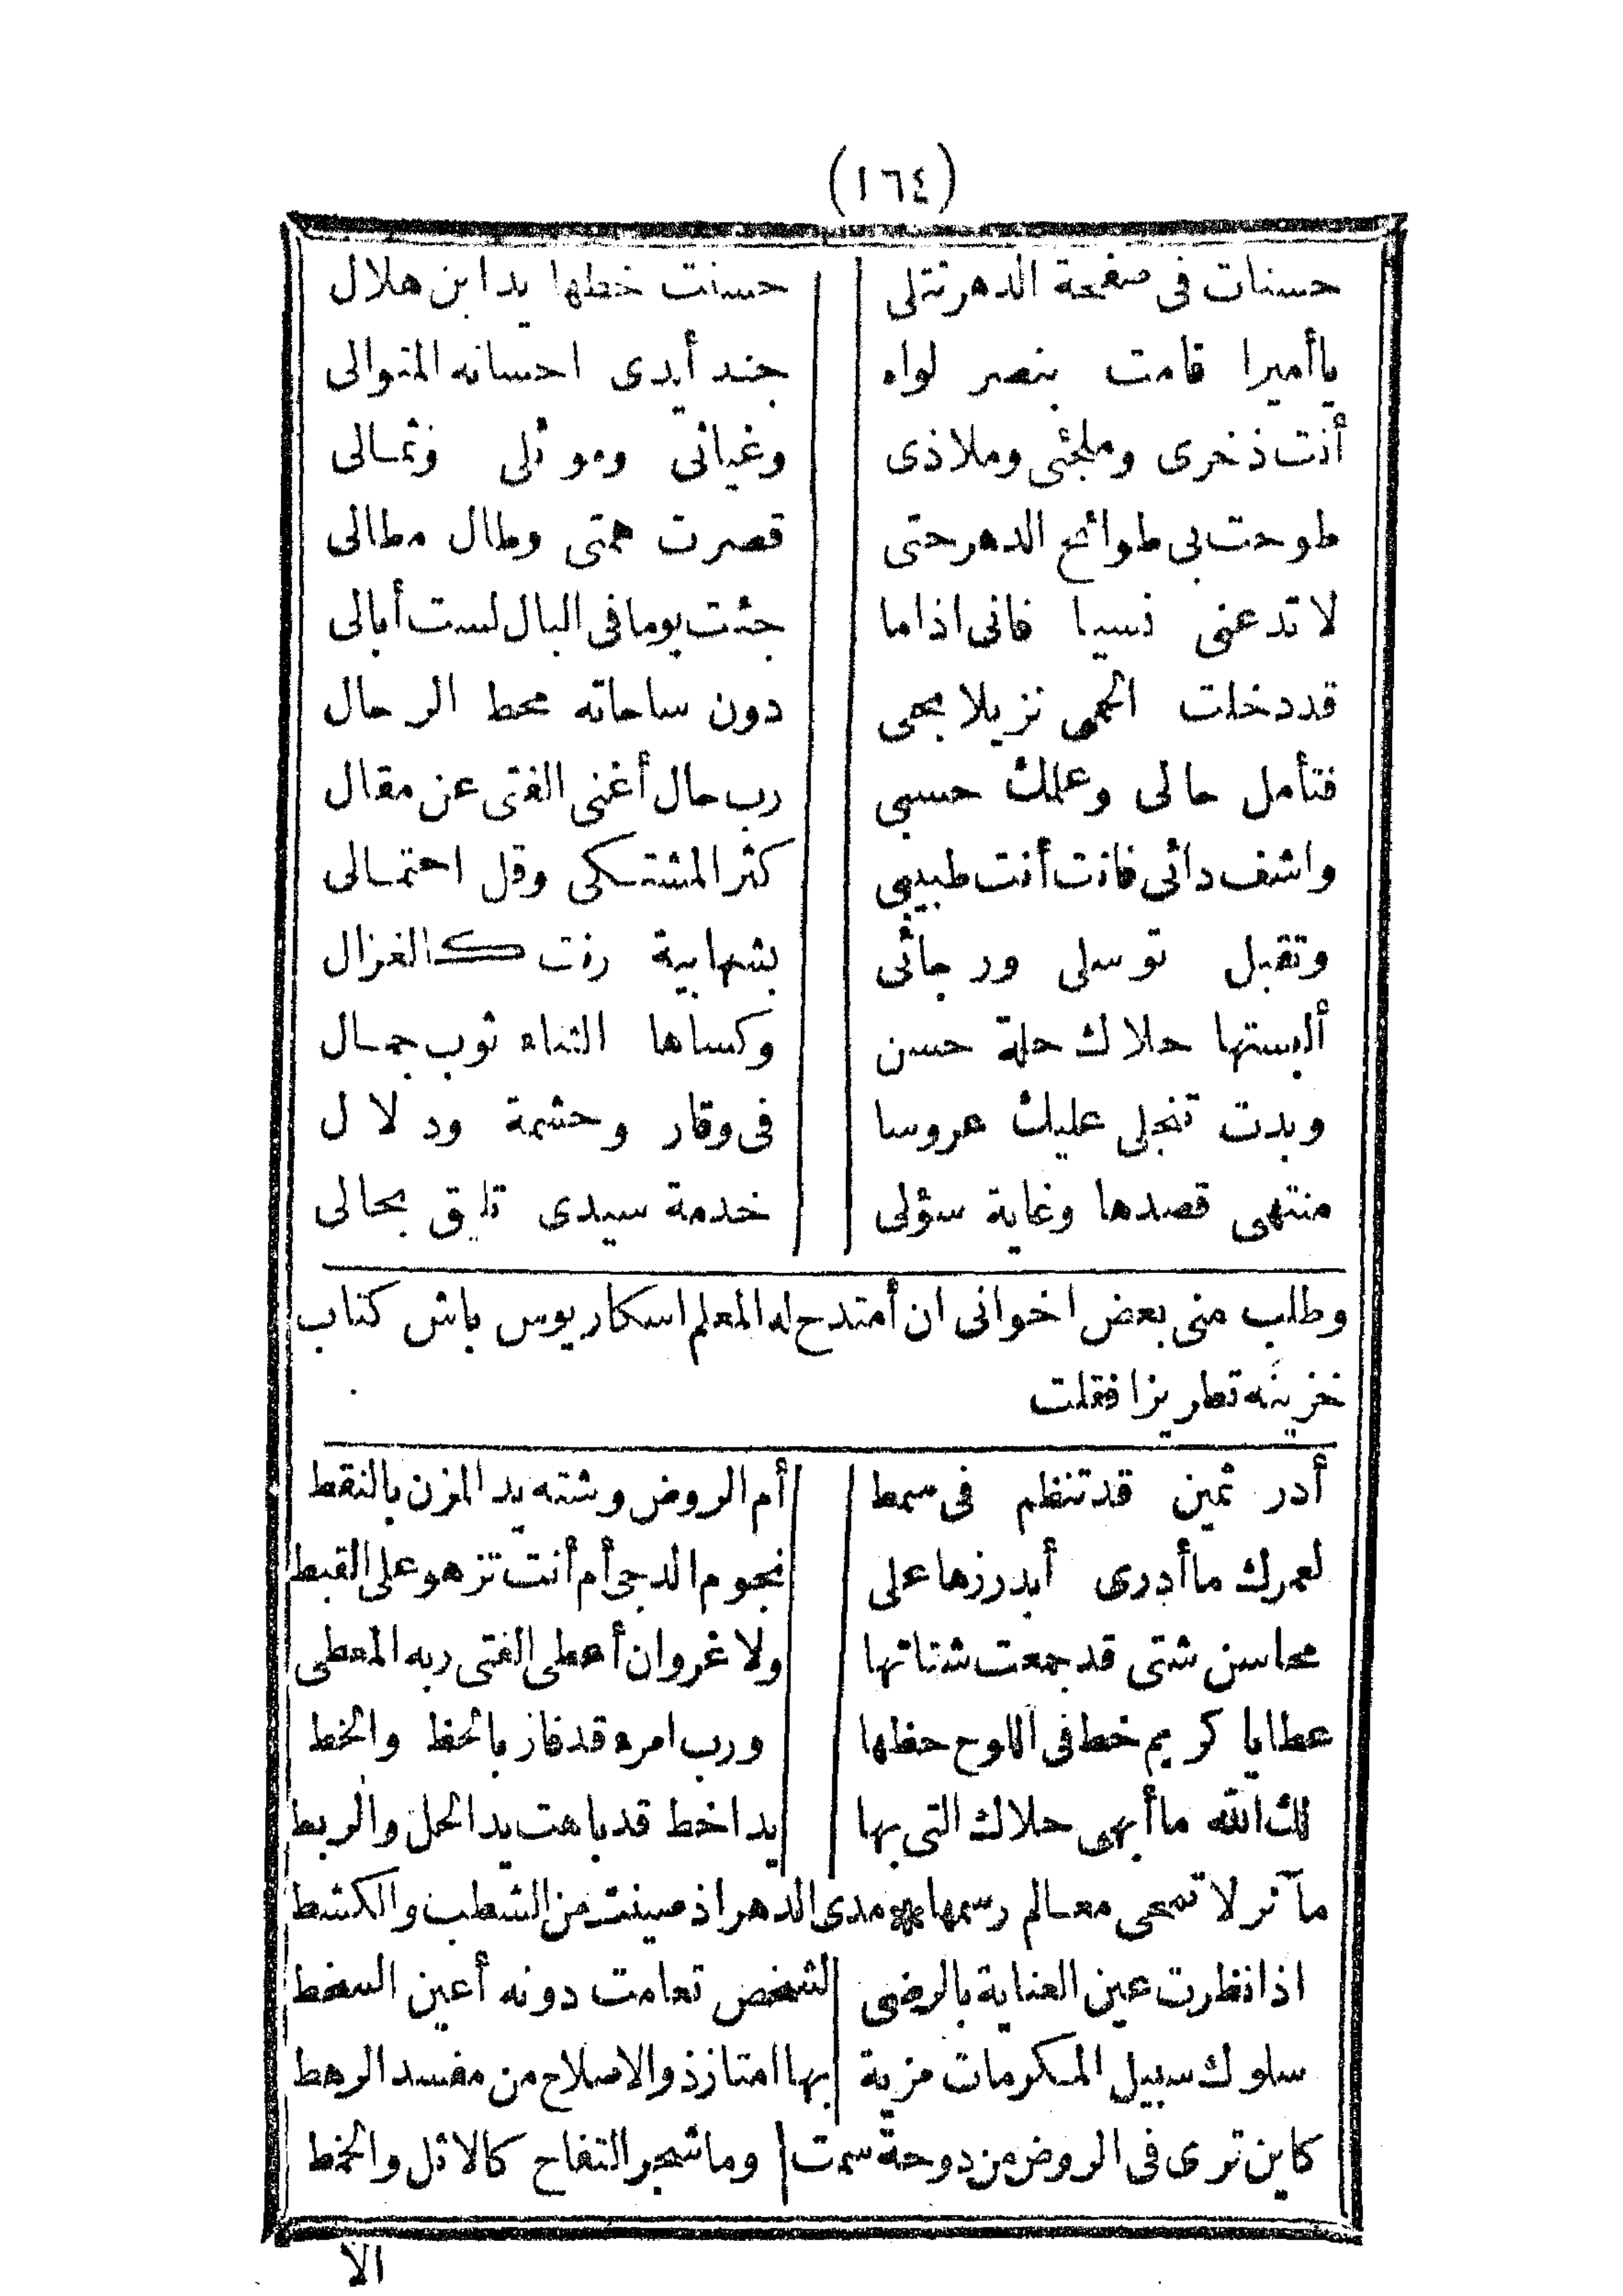 (١٦٤)
حسنات فى صفحة الدهر تتلى حسنت خطها يد ابن هلال
يا أميرا قامت بنصر لواه جند أيدى احسانه المتوالى
أنت ذخرى وملجئى وملاذى وغياثى وموئلى وثمالى
طوحت بى طوائح الدهر حتى قصرت همتى وطال مطالى
لا تدعنى نسيا فانى اذا ما جئت يوما فى البال لست أبالى
قد دخلت الحمى نزيلا بحى دون ساحاته محط الرحال
فتأمل حالى وعلمك حسبى رب حال أغنى الفتى عن مقال
واشف دائى فانت أنت طبيبى كثر المشتكى وقل احتمالى
وتقبل توسلى ورجائى بشهابية رنت كالغزال
ألبستها حلاك حلة حسن وكساها الثناء ثوب جمال
وبدت تنجلى عليك عروسا فى وقار وحشمة ودلال
منتهى قصدها وغاية سؤلى خدمة سيدى تليق بحالى
وطلب منى بعض اخوانى ان أمتدح له المعلم اسكاريوس باش كتاب
خزينه تطريزا فقلت
أدر ثمين قد تنظم فى سمط أم الروض وشته يد المزن بالنقط
لعمرك ما أدرى أبدر زها على نجوم الدجى أم أنت تزهو على القبط
محاسن شتى قد جمعت شتاتها ولا غروان أعطى الفتى ربه المعطى
عطايا كريم خط فى اللوح حظها ورب امرء قد فاز بالحظ والخط
لك الله ما أبهى حلاك التى بها يد اخط قد باهت يد الحل والربط
مآثر لا تمحى معالم رسمها * مدى الدهر اذ صينت من الشطب والكشط
اذا نظرت عين العناية بالرضى لشخص تعامت دونه أعين السخط
سلوك سبيل المكرمات مزية بها امتاز ذو الاصلاح من مفسد الرهط
كاين ترى فى الروض من دوحة سمت وما شجر التفاح كالاثل والخمط
الا